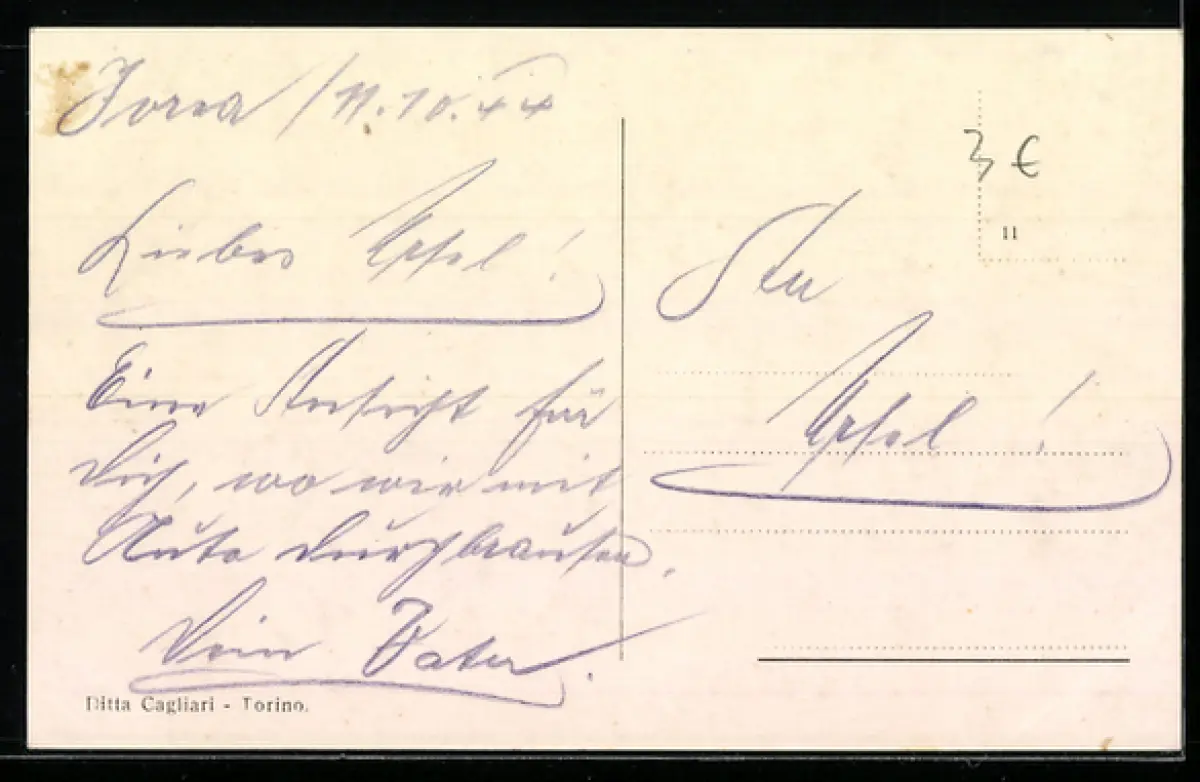 Jvrea / 11.10.44
Liebes Ursel!
Eine Ansicht für
Dich, wo wir mit
Auto durchbrausen.
Dein Vater.
Ditta Cagliari - Torino.
3 €
11
Ursel!